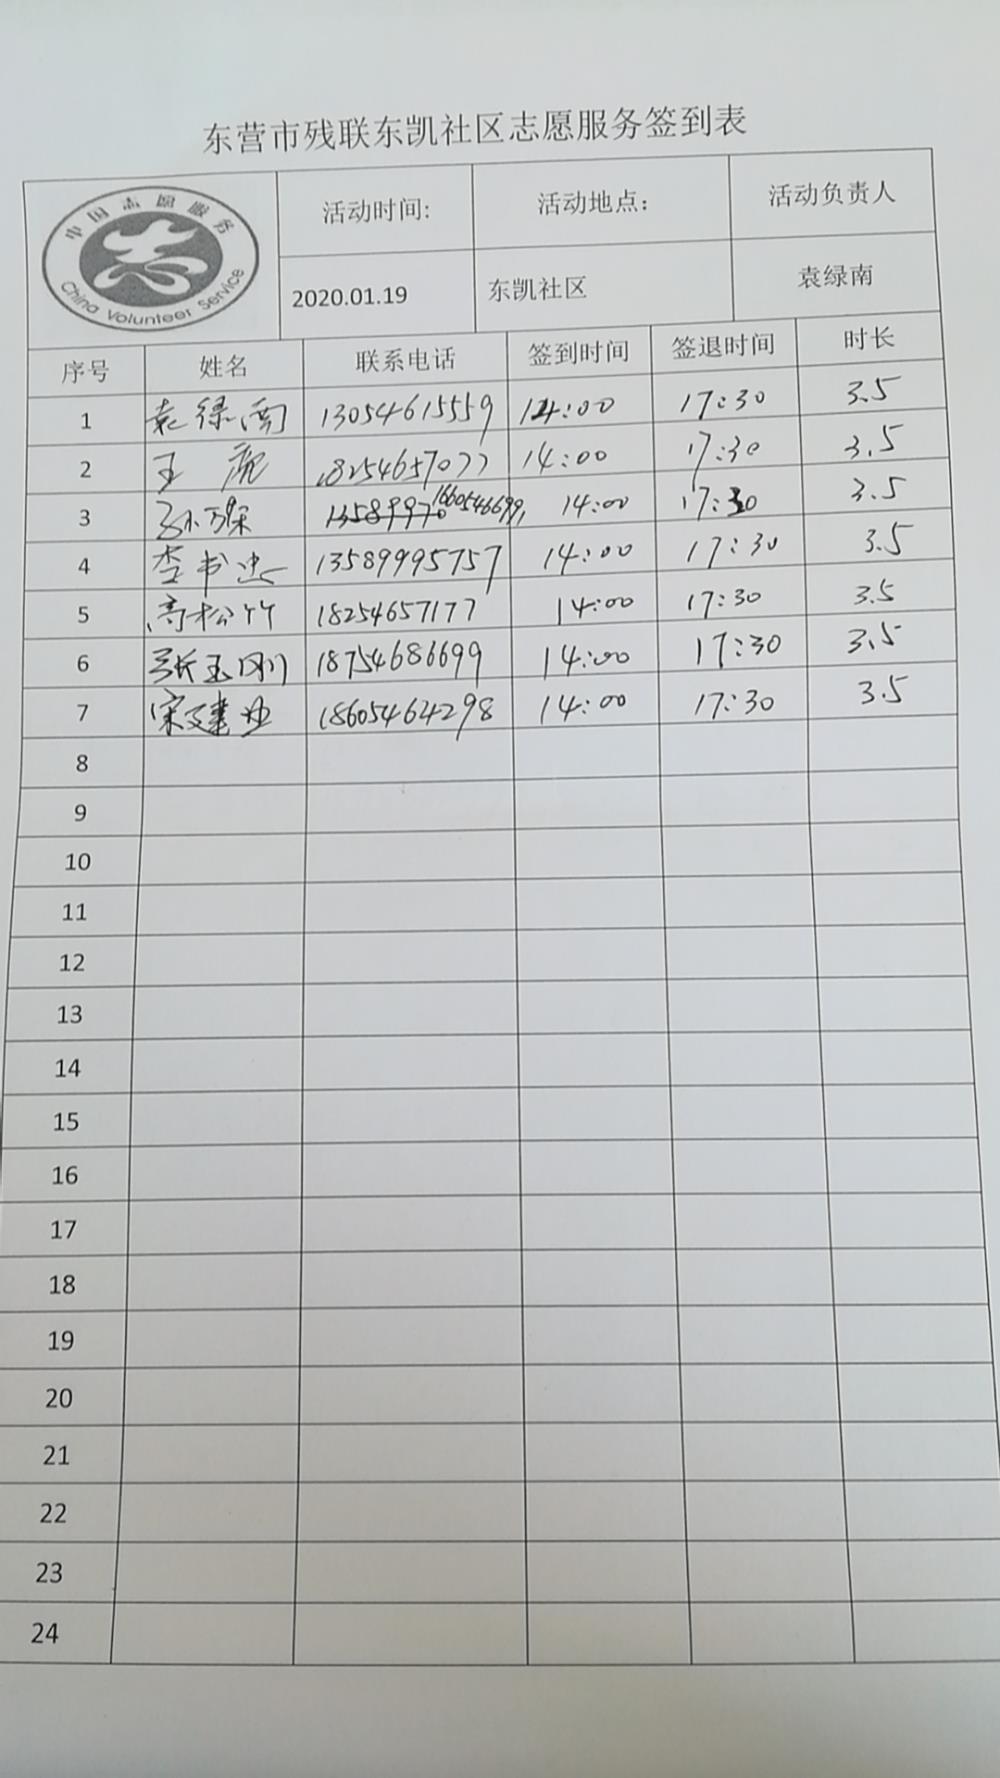 东营市残联东凯社区志愿服务签到表
中国志愿服务
China Volunteer Service
活动时间: 活动地点: 活动负责人
2020.01.19 东凯社区 袁绿南
序号 姓名 联系电话 签到时间 签退时间 时长
1 袁绿南 13054615559 14:00 17:30 3.5
2 王虎 18254657077 14:00 17:30 3.5
3 孙万保 16605466991 14:00 17:30 3.5
4 李书忠 13589995757 14:00 17:30 3.5
5 高松竹 18254657177 14:00 17:30 3.5
6 张玉刚 18754686699 14:00 17:30 3.5
7 宋建业 18605464298 14:00 17:30 3.5
8
9
10
11
12
13
14
15
16
17
18
19
20
21
22
23
24